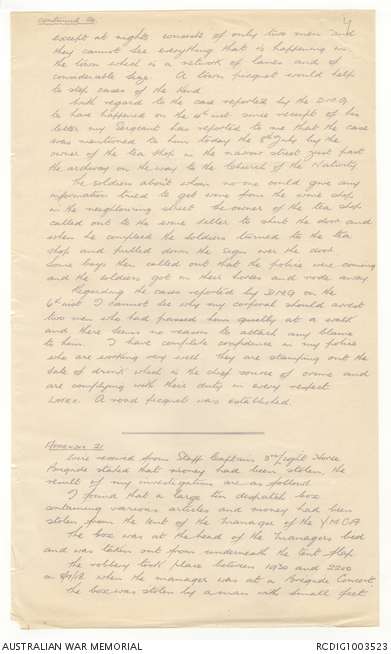 continued 20.
4
except at nights consists of only two men and
they cannot see everything that is happening in
the town which is a network of lanes and of
considerable size. A town picquet would help
to stop cases of the kind.
With regard to the case reported by the DMG
to have happened on the 4th inst since receipt of his
letter my Sergeant has reported to me that the case
was mentioned to him today the 6th July by the
owner of the tea shop in the narrow street just past
the archway on the way to the Church of the Nativity.
The soldiers about whom no one could give any
information tried to get wine from the wine shop
in the neighbouring street. The owner of the tea shop
called out to the wine seller to shut the door and
when he complied the soldiers turned to the tea
shop and pulled down the sign over the door.
Some boys then called out that the police were coming
and the soldiers got on their horses and rode away.
Regarding the cases reported by DMG on the
6th inst I cannot see why my corporal should arrest
two men who had passed him quietly at a walk
and there seems no reason to attach any blame
to him. I have complete confidence in my police
who are working very well. They are stamping out the
sale of drink which is the chief source of crime and
are complying with their duty in every respect.
Later. A road picquet was established.
Annexure 21
Wire received from Staff Captain 3rd Light Horse
Brigade stated that money had been stolen, the
result of my investigation are as follows
I found that a large tin despatch box
containing various articles and money had been
stolen from the tent of the Manager of the YMCA
The box was at the head of the Managers bed
and was taken out from underneath the tent flap.
The robbery took place between 1930 and 2200
on when the manager was at a Brigade Concert.
The box was stolen by a man with small feet
AUSTRALIAN WAR MEMORIAL
RCDIG1003523